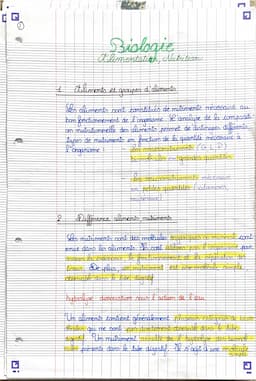 ①
Biologie
Alimentation, Nutrition
1 Aliments et groupes d'aliments
Les aliments sont constitués de nutriments nécessaires au
bon fonctionnement de l'organisme. L'analyse de la compositi
on nutritionnelle des aliments permet de distinguer différents
types de nutriments en fonction de la quantité nécessaire à
l'organisme :
- les macronutriments (G, L, P)
en grandes quantités
- les micronutriments nécessaires
en petites quantités (vitamines,
minéraux)
2 Différence aliments nutriments
Les nutriments sont des molécules organiques ou minérales cont
enus dans les aliments. Ils sont utilisés par l'organisme pour
assurer la croissance, le fonctionnement et la réparation des
tissus. De plus, un nutriment est une molécule simple
dans le tube digestif.
hydrolyse : dissociation sous l'action de l'eau
Un aliment contient généralement plusieurs
qui ne sont pas directement dans le tube
digestif. Un nutriment résulte de l'hydrolyse des
présents dans le tube digestif. Il s'agit d'une molécule
simple